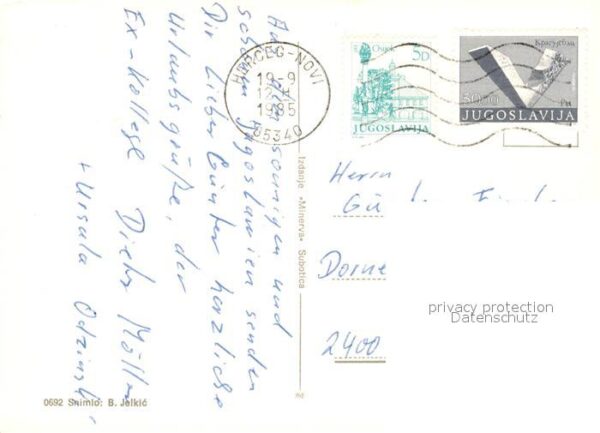 Aus dem sonnigen und
schönen Jugoslawien senden
Dir lieber Günter herzliche
Urlaubsgrüße, der
Ex-Kollege Dieter Möller
+ Ursula
HERCEG-NOVI
19-9
1985
85340
Osijek
5D
JUGOSLAVIJA
Крагујевац
JUGOSLAVIJA
Izdanje »Minerva« Subotica
Herrn
Gü
Dorne
2400
privacy protection
Datenschutz
0692 Snimio: B. Jelkić